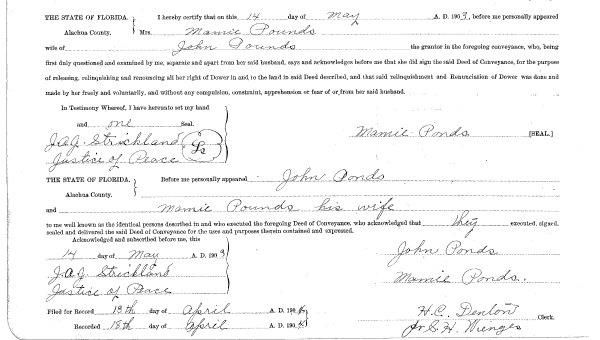 THE STATE OF FLORIDA. I hereby certify that on this 14 day of May A. D. 1903, before me personally appeared
Alachua County. Mrs. Mamie Pounds
wife of John Pounds the grantor in the foregoing conveyance, who, being
first duly questioned and examined by me, separate and apart from her said husband, says and acknowledges before me that she did sign the said Deed of Conveyance, for the purpose
of releasing, relinquishing and renouncing all her right of Dower in and to the land in said Deed described, and that said relinquishment and Renunciation of Dower was done and
made by her freely and voluntarily, and without any compulsion, constraint, apprehension or fear of or from her said husband.
In Testimony Whereof, I have hereunto set my hand
and one Seal.
J.A.J. Strickland Ls Mamie Ponds [SEAL.]
Justice of Peace
THE STATE OF FLORIDA. Before me personally appeared John Ponds
Alachua County.
and Mamie Pounds his wife
to me well known as the identical persons described in and who executed the foregoing Deed of Conveyance, who acknowledged that they executed, signed,
sealed and delivered the said Deed of Conveyance for the uses and purposes therein contained and expressed.
Acknowledged and subscribed before me, this
14 day of May A. D. 1903 John Ponds
J.A.J. Strickland Mamie Ponds.
Justice of Peace
Filed for Record 13th day of April A. D. 190 H.C. Denton Clerk.
Recorded 18th day of April A. D. 190